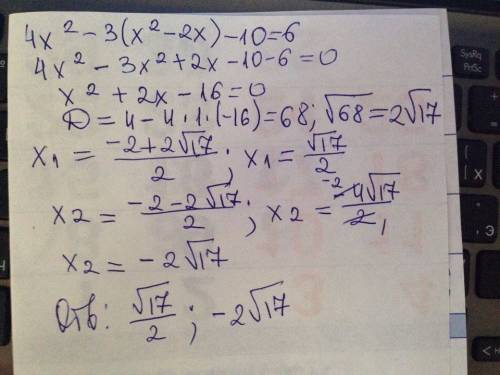 4x² - 3(x² - 2x) - 10 = 6
4x² - 3x² + 2x - 10 - 6 = 0
x² + 2x - 16 = 0
D = 4 - 4 · 1 · (-16) = 68; √68 = 2√17
x1 = (-2 + 2√17)/2; x1 = √17/2
x2 = (-2 - 2√17)/2; x2 = -4√17/2, -2
x2 = -2√17
Отв: √17/2; -2√17
SysRq
PrtSc
{
[
Х
Э